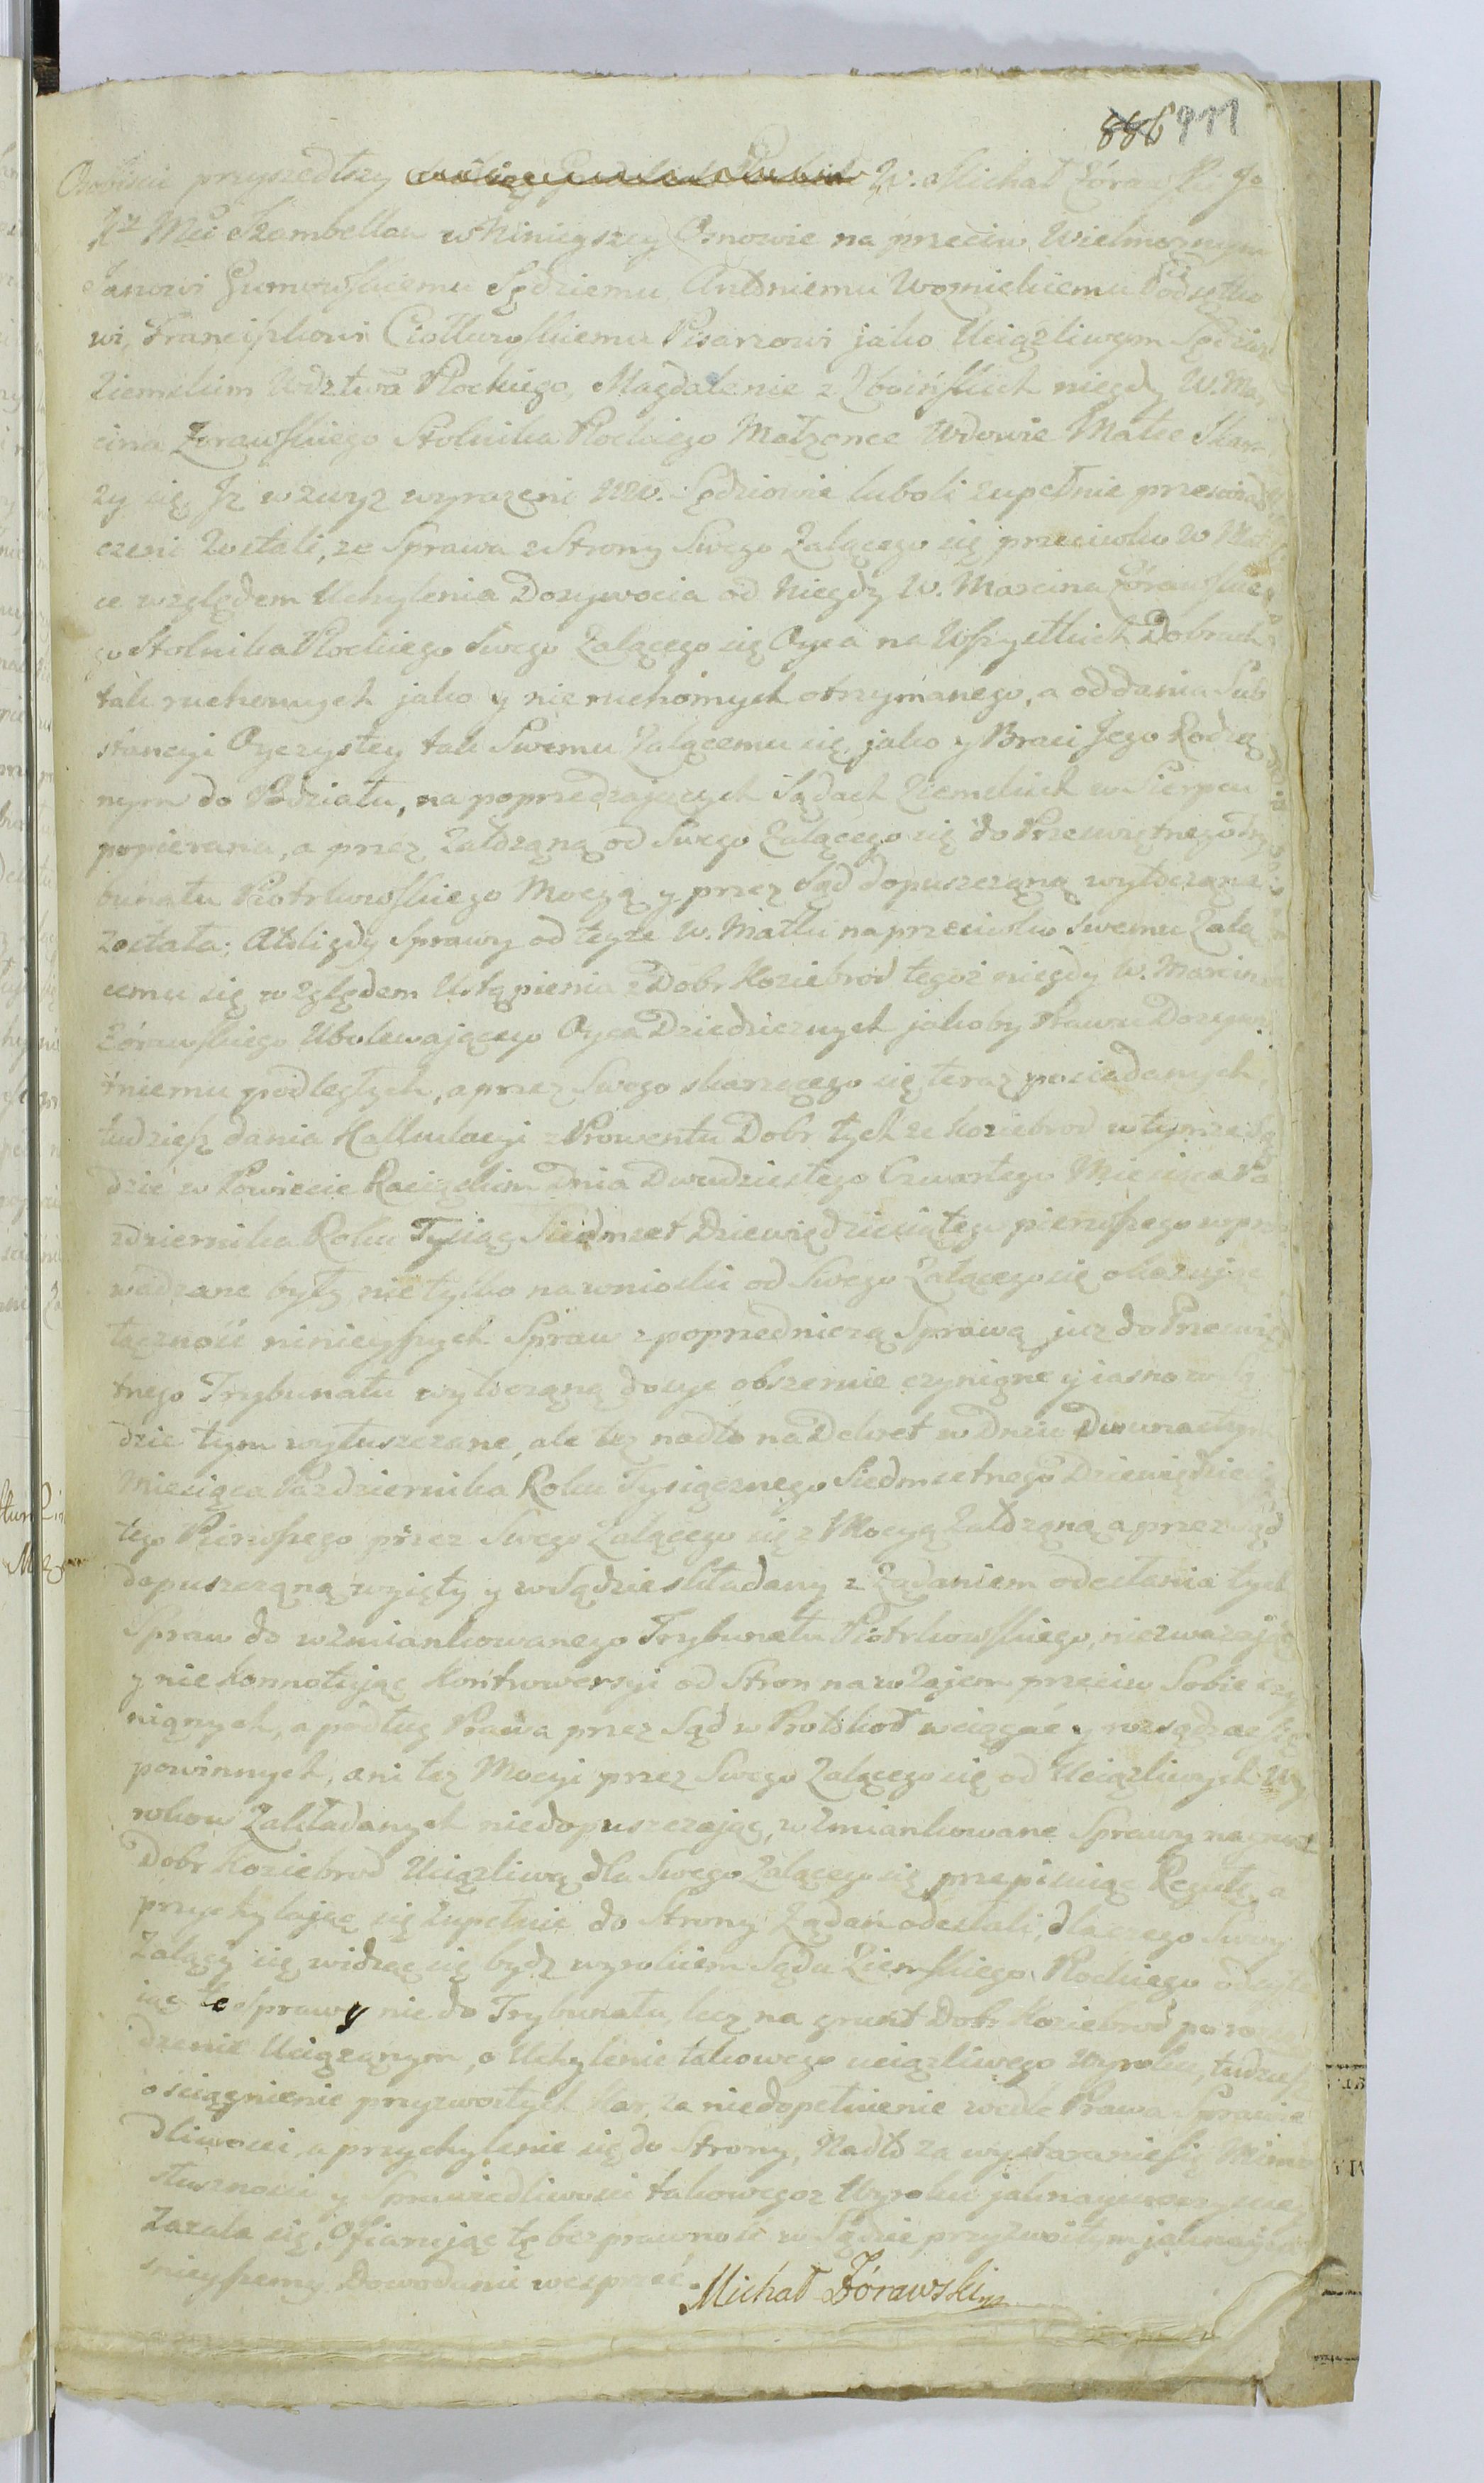 886 911
Osobiscie przyszedłszy W. Michał Żórawski Jo
Kr Mci Szambellan w Ninieyszey Osnowie na przeciw Wielmoznym
Janowi Gumowskiemu Sędziemu Antoniemu Woznickiemu Podsętko
wi, Franciszkowi Ciołkowskiemu Pisarzowi jako Uciązliwym Sędziom
Ziemskim Wdztwa Płockiego, Magdalenie z Zboińskich niegdy W. Mar
cina Zorawskiego Stolnika Płockiego Małzonce Wdowie Matce Skar
zy się, Iz wzwyz wyrazeni WW. Sędziowie luboli zupełnie przeswiad
czeni zostali, ze Sprawa z Strony Swego Zalącego się przeciwko W Mat
ce względem Uchylenia Dozywocia od Niegdy W. Marcina Żórawskie
go Stolnika Płockiego Swego Zalącego się Oyca na Wszystkich Dobrach
tak ruchomych jako y nieruchomych otrzymanego, a oddania Sub
stancyi Oyczystey tak Swemu Zalącemu się, jako y Braci Jego Rodzo
nym do Podziału, na poprzedzaiących Sądach Ziemskich w Sierpcu
popierana, a przez Załozoną od Swego Zalącego się do Prześwietnego Try
bunału Piotrkowskiego Mocyą y przez Sąd dopuszczoną wytoczona
została; Atoli gdy Sprawy od teyze W. Matki na przeciwko Swemu Zalą
cemu się względem Ustąpienia z Dobr Koziebrod tegoz niegdy W. Marcina
Żórawskiego Ubolewającego Oyca Dziedzicznych jakoby Prawu Dozywo
tniemu podległych, a przez Swego skarzącego się teraz posiadanych,
tudziesz dania Kalkulacyi z Prowentu Dobr tychze Koziebrod w tymze Są
dzie w Powiecie Raciązkim Dnia Dwudziestego Czwartego Miesiąca Pa
zdziernika Roku Tysiąc Siedmset Dziewiędziesiątego pierwszego wpro
wadzane były, nie tylko na wnioski od Swego Zalącego się okazując
łączność ninieyszych Spraw z poprzedniczą Sprawą juz do Prześwie
tnego Trybunału wytoczoną dosyc obszernie czynione y iasno w Są
dzie tym wyłuszczane, ale tez nadto na Dekret w Dniu Dwunastym
Miesiąca Pazdziernika Roku Tysiącznego Siedmsetnego Dziewiędziesią
tego Pierwszego przez Swego Zalącego się z Mocyą Załozoną a przez Sąd
dopuszczoną wzięty y w Sądzie składany z Ządaniem odesłania tych
Spraw do wzmiankowanego Trybunału Piotrkowskiego, niezwazając
y nie konnotując Kontrowersyi od Stron nawzajem przeciw Sobie czy
nionych, a podług Prawa przez Sąd w Protokoł wciągać y rozsądzac się
powinnych, ani tez Mocyi przez Swego Zalącego się od Uciązliwych Wy
rokow Zakładanych niedopuszczając, wzmiankowane Sprawy na grunt
Dobr Koziebrod Uciązliwą dla Swego Zalącego się przepisując Regułę, a
przychylając się zupełnie do Strony Ządań odesłali, dlaczego Swoy
Zalący się widząc się bydz wyrokiem Sądu Ziemskiego Płockiego odsyła
iąc te Sprawy nie do Trybunału, lecz na grunt Dobr Koziebrod po rozsą
dzenie Uciązonym, o Uchylenie takowego uciązliwego Wyroku, tudziesz
o sciągnienie przyzwoitych Kar, za niedopełnienie wedle Prawa Sprawie
dliwosci, a przychylenie się do Strony, Nadto za wystaranie się Mimo
słusznosci y Sprawiedliwosci takowegoz Wyroku jaknayuroczysciey
Zarala się, Ofiarując tę bezprawność w Sądzie przyzwoitym jaknayia
snieyszemy Dowodami wesprzeć.
Michał Żórawski mp